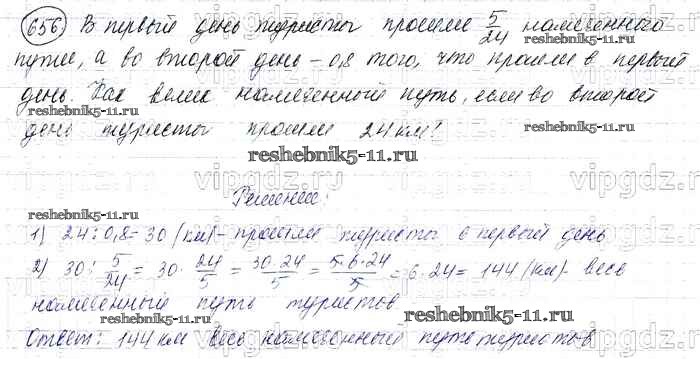 656 В первый день туристы прошли 5/24 намеченного
пути, а во второй день - 0,8 того, что прошли в первый
день. Как велик намеченный путь, если во второй
reshebnik5-11.ru
reshebnik5-11.ru
день туристы прошли 24 км?
reshebnik5-11.ru
vipgdz.ru
vipgdz.ru
vipgdz.ru
Решение:
reshebnik5-11.ru
1) 24 : 0,8 = 30 (км) - прошли туристы в первый день
2) 30 : 5/24 = 30 · 24/5 = 30·24/5 = 5·6·24/5 = 6·24 = 144 (км) - весь
намеченный путь туристов
reshebnik5-11.ru
reshebnik5-11.ru
Ответ: 144 км весь намеченный путь туристов
vipgdz.ru
vipgdz.ru
vipgdz.ru